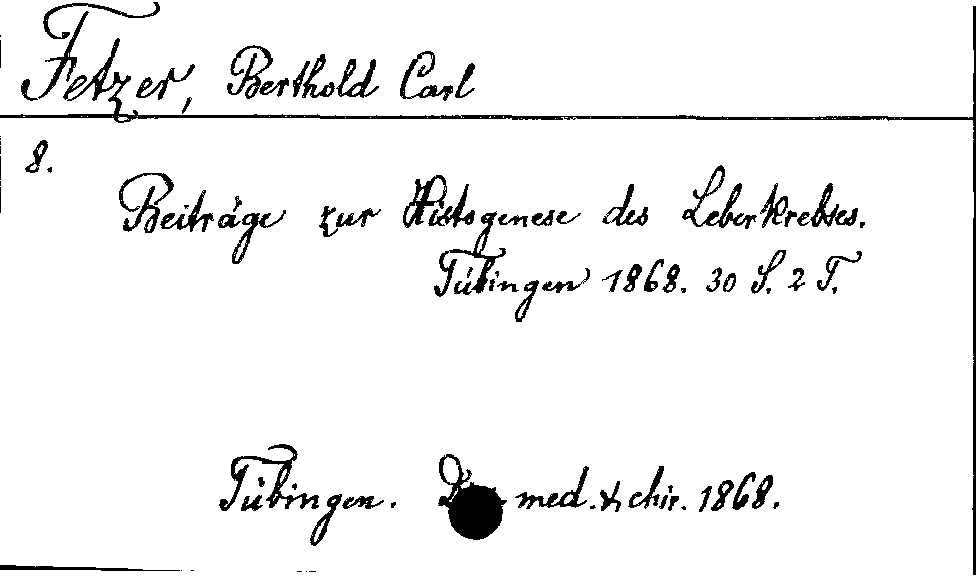 Fetzer, Berthold Carl
8.
Beiträge zur Histogenese des Leberkrebses.
Tübingen 1868. 30 S. 2 T.
Tübingen. med. & chir. 1868.